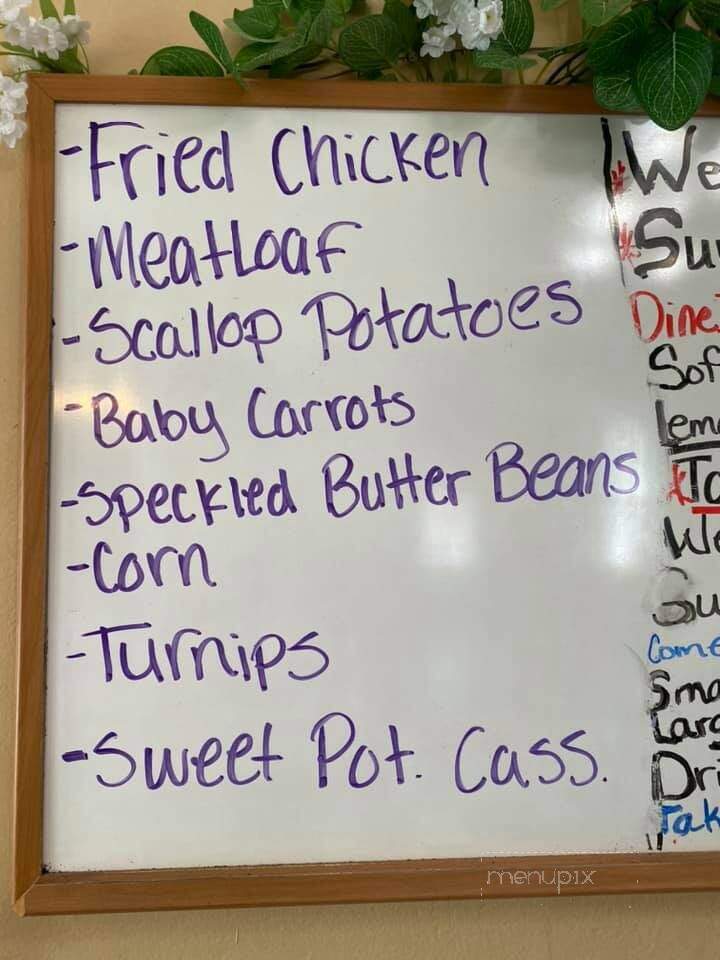 -Fried Chicken
-Meatloaf
-Scallop Potatoes
-Baby Carrots
-Speckled Butter Beans
-Corn
-Turnips
-Sweet Pot. Cass.
*We
*Su
Dine
Sof
Lem
*Ta
We
Su
Come
Sma
Larg
Dri
Tak
menupix